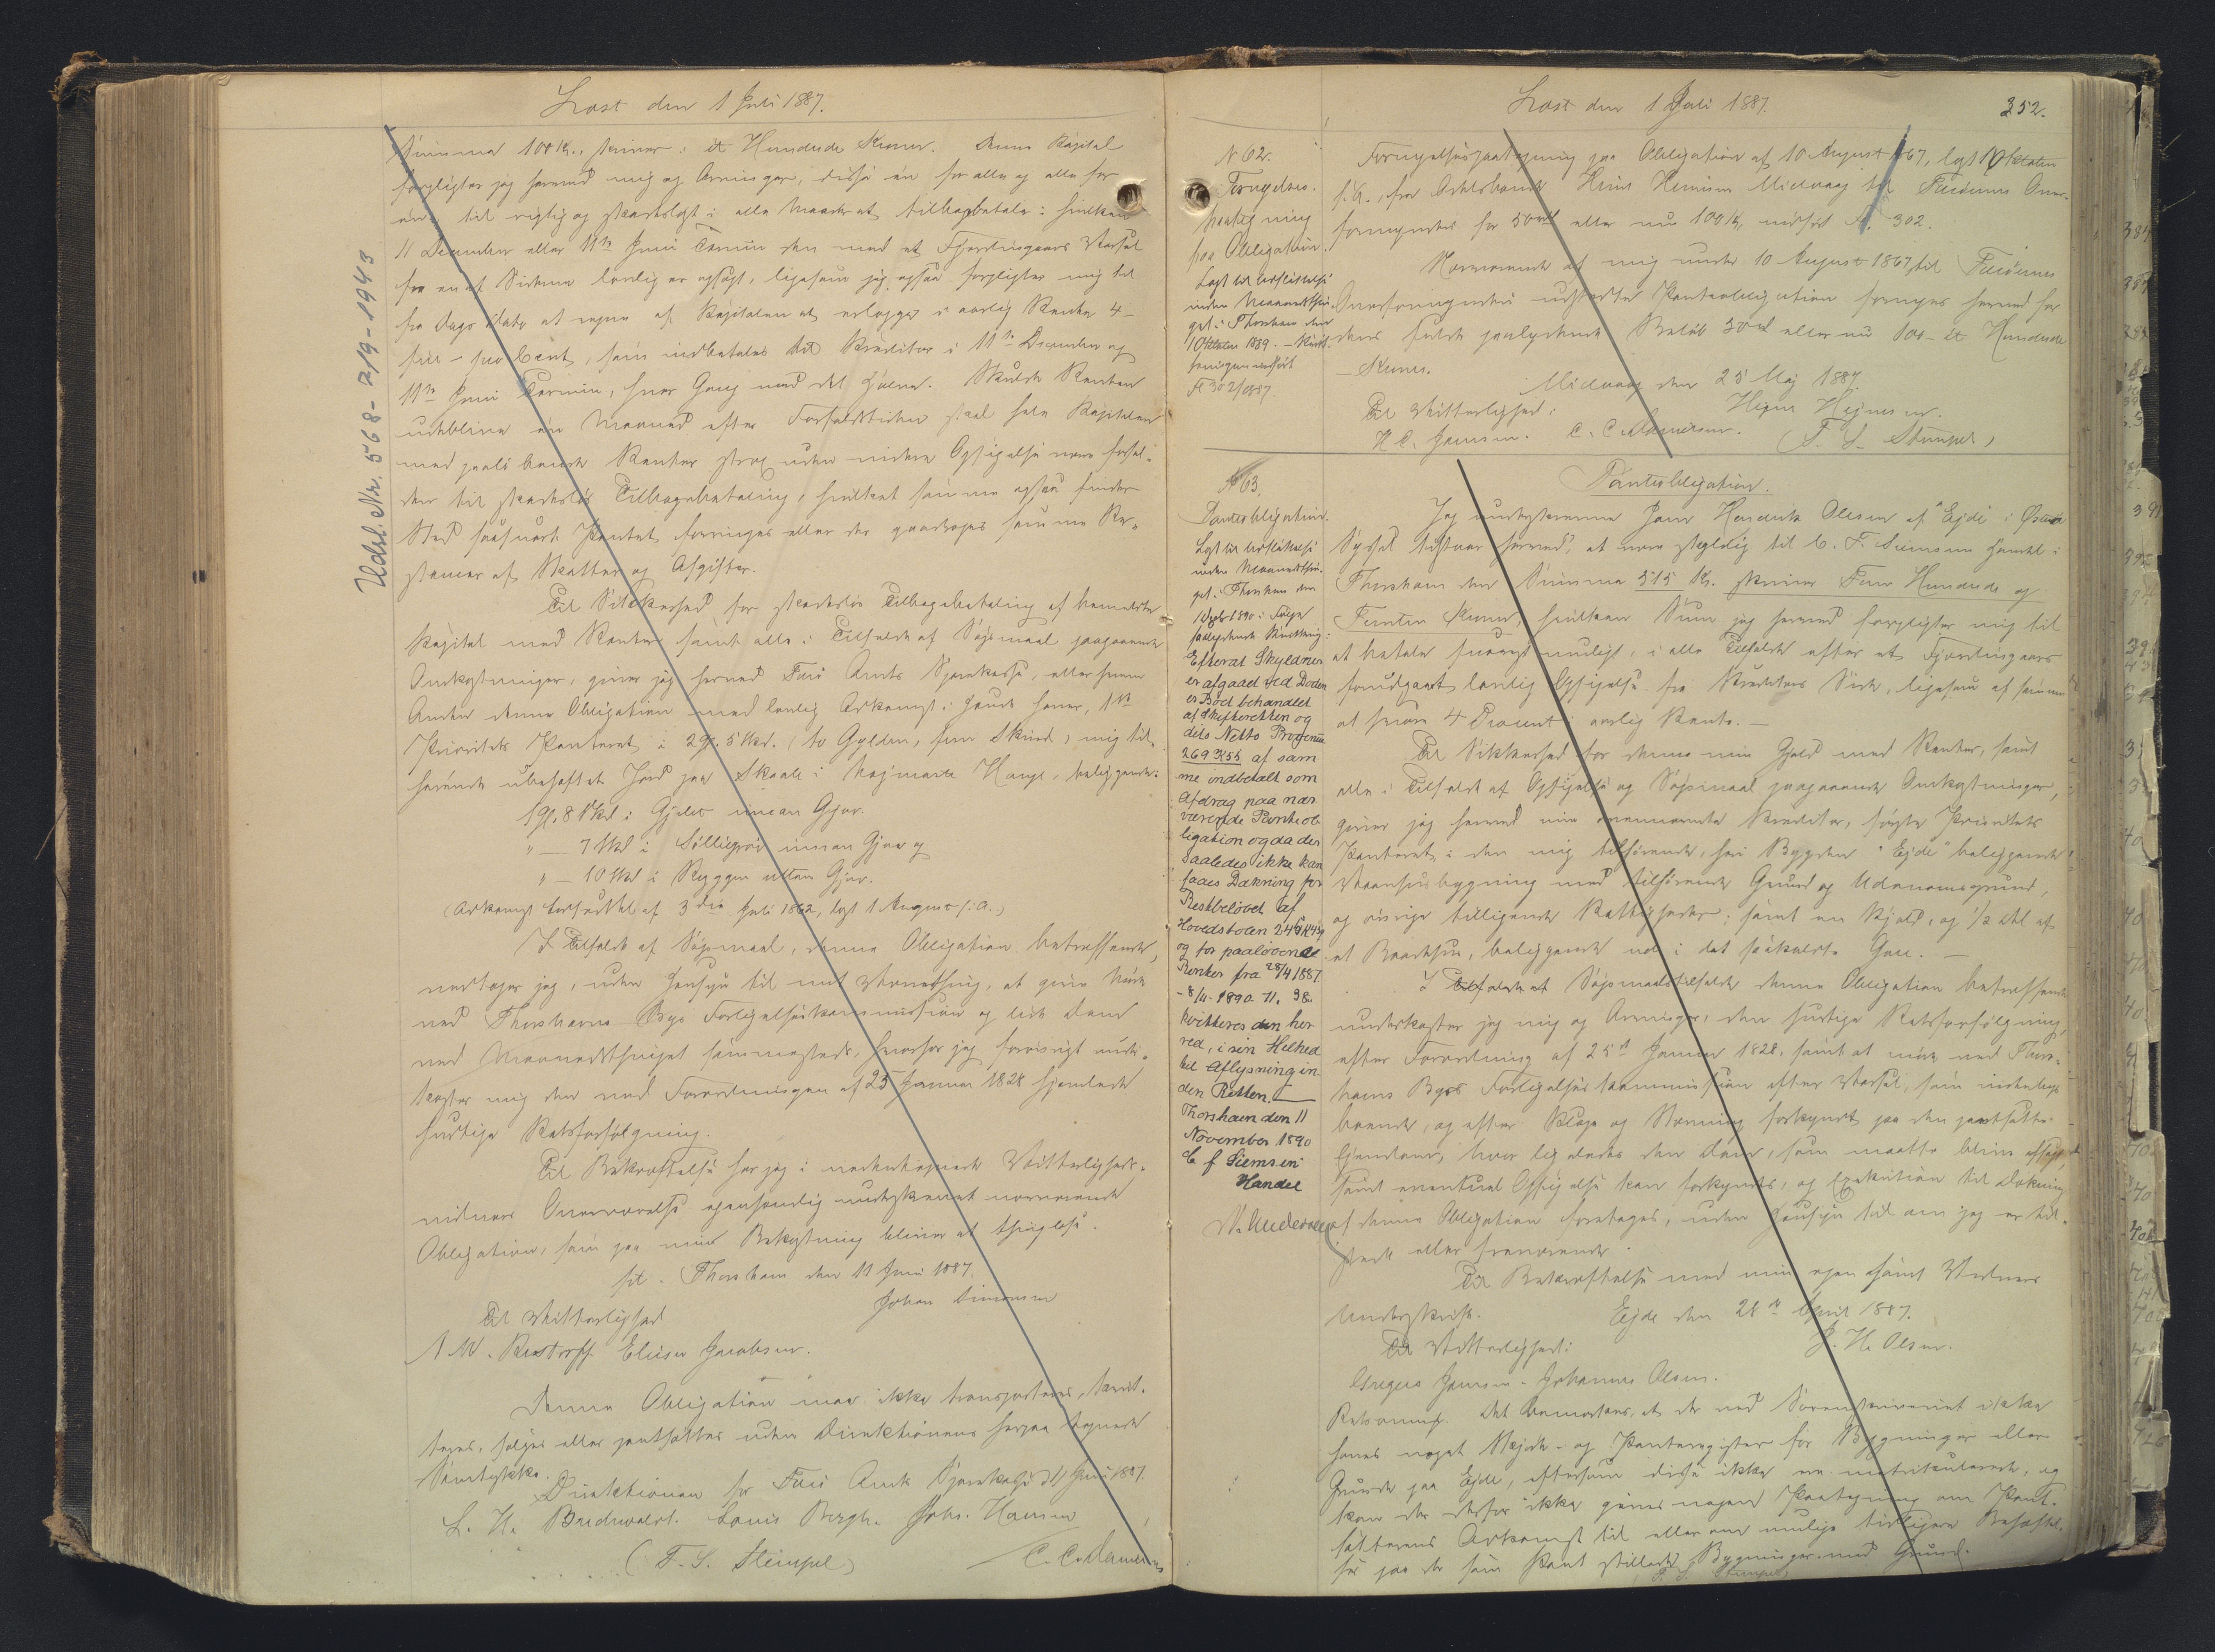 Læst den 1 Juli 1887.
Summa 100 Kr., skriver: et Hundrede Kroner. Denne Kapital
forpligter jeg herved mig og Arvinger, disse en for alle og alle for
en, til rigtig og skadesløst i alle Maader at tilbagebetale i hvilken
11 December eller 11te Juni Termin den med et Fjerdingaars Varsel
fra en af Siderne lovlig er opsagt, ligesom jeg ogsaa forpligter mig til
fra Dags Dato at regne af Kapitalen at erlægge i aarlig Rente 4 –
fire – pro Cent, som indbetales til Kreditor i 11te December og
11te Juni Termin, hver Gang med det halve. Skulde Renten
udeblive en Maaned efter Forfaldstiden skal hele Kapitalen
med paaløbende Renter strax uden videre Opsigelse være forfal-
den til skadesløs Tilbagebetaling, hvilket samme ogsaa finder
Sted saafremt Pantet forringes eller der gaar to samme Re-
stancer af Skatter og Afgifter.
Til Sikkerhed for skadesløs Tilbagebetaling af bemeldte
Kapital med Renter samt alle i Tilfælde af Søgsmaal paagaaende
Omkostninger, giver jeg herved Færø Amts Sparekasse, eller hvem
Anden denne Obligation med lovlig Adkomst i Hænde haver, 1ste
Prioritets Panteret i 2 gl. 5 Skd. (to Gylden, fem Skind) mig til-
hørende ubehæftet Jord paa Skaale i Højmarte Hauge, beliggende:
1 gl. 8 Skd i Gjelet innan Gjar.
" — 7 Skd i innan Gjar og
" — 10 Skd i Ryggen uttan Gjar.
(Adkomst af 3die Juli 1862, læst 1 August s. A.)
I Tilfælde af Søgsmaal, denne Obligation betræffende,
vedtager jeg, uden Hensyn til mit Værnething, at give Møde
ved Thorshavns Byes Forligelseskommission og lide Dom
ved Maanedsthinget sammesteds, hvorhos jeg forøvrigt under-
kaster mig den ved Forordningen af 25 Januar 1828 hjemlede
hurtige Retsforfølgning.
Til Bekræftelse har jeg i nedentegnede Vitterligheds-
vidners Overværelse egenhændig underskrevet nærværende
Obligation, som paa min Bekostning bliver at thinglæse.
pt. Thorshavn den 11 Juni 1887.
Johan Simonsen
Til Vitterlighed
M. W. Restorff. Elieser Jacobsen.
Denne Obligation maa ikke transporteres,
tages, sælges eller pantsættes uden Direktionens herpaa tegnede
Samtykke.
Direktionen for Færø Amts Sparekasse d 11 Juni 1887.
L. H. Bredwaldt. Louis Bergh. Johs. Hansen
(F. S. Stempel) C. C.
Udsl. Nr. 568 - 2/9 - 1943
Læst den 1 Juli 1887
352.
N 62.
Fornyelses-
paategning
paa Obligation.
Læst til Udslettelse
inden Maanedsthin-
get i Thorshavn den
1 Oktober 1889. –
indført
Fl 302/1887.
Fornyelsespaategning paa Obligation af 10 August 1867, læst 1 Oktober
s. A., fra Heine Heinesen Midvaag til Færøernes Over-
formynderi for 50 rd eller nu 100 Kr, indført Fl. 302.
Nærværende af mig under 10 August 1867 til Færøernes
Overformynderi udstedte Panteobligation fornyes herved for
dens fulde paalydende Beløb 50 rd eller nu 100 – et Hundrede
– Kroner.
Midvaag den 25 Maj 1887.
Til Vitterlighed: Heine Heinesen.
H C. Jensen. C. C. (F. S. Stempel)
N 63.
Panteobligation.
Læst til Udslettelse
inden Maanedsthin-
get i Thorshavn den
1890 i Følge
saalydende Kvittering:
Efterat Skyldner
er afgaaet ved Døden
er Boet behandlet
af Skifteretten og
dets Netto Provenue
269 3/55 af sam
me indbetalt som
Afdrag paa nær
værende Panteob
ligation og da der
saaledes ikke kan
faaes Dækning for
Restbeløbet af
Hovedstolen 245 Kr 45
og for paaløbende
Renter fra 28/4 1887
– 8/11 1890 71. 98.
kvitteres den her
ved, i sin Helhed
til Aflysning in
den Retten. —
Thorshavn den 11
November 1890
C f Siemsen
Handel
Panteobligation.
Jeg undertegnede Jens Hendrik Olesen af "Ejde" i Østerø
Syssel tilstaar herved, at være skyldig til C. F. Siemsens Handel i
Thorshavn den Summa 515 Kr. skriver Fem Hundrede og
Femten Kroner, hvilken Sum jeg herved forpligter mig til
at betale snarest muligt, i alle Tilfælde efter et Fjerdingaars
forudgaaet lovlig Opsigelse fra Kreditors Side, ligesom af samme
at svare 4 Procent i aarlig Rente. —
Til Sikkerhed for denne min Gjæld med Renter, samt
alle i Tilfælde af Opsigelse og Søgsmaal paagaaende Omkostninger,
giver jeg herved min ovennævnte Kreditor, første Prioritets
Panteret i den mig tilhørende, her i Bygden "Ejde" beliggende
Vaaningsbygning med tilhørende Grund og Udenomsgrund,
og øvrige tilliggende Rettigheder; samt en Kjald, og 1/2 Del af
et Baadehus, beliggende i det saakaldte —
I Tilfælde af Søgsmaalstilfælde denne Obligation betræffende
underkaster jeg mig og Arvinger, den hurtige Retsforfølgning,
efter Forordning af 25de Januar 1828, samt at møde ved Thors-
havns Byes Forligelseskommission efter Varsel, som indenbys
boende, og efter Klage og Stævning forkyndt paa den pantsatte
Ejendom, hvor ligeledes den Dom, som maatte blive afsagt,
samt eventuel Opsigelse kan forkyndes, og Exekution til Dækning
af denne Obligation foretages, uden Hensyn til om jeg er til-
stede eller fraværende.
Til Bekræftelse med min egen samt Vidners
Underskrift. Ejde den 28de April 1887.
Til Vitterlighed: J. H. Olsen.
Gregers Jensen. Johannes Olesen.
Retsanm. Det bemærkes, at der ved Sorenskriveriet ikke
haves noget Skjøde- og Panteregister for Bygninger eller
Grunde paa Ejde, eftersom disse ikke ere matrikulerede, og
kan der derfor ikke gives nogen Paategning om Pant-
sætterens Adkomst til eller om mulige tidligere Behæftel-
ser paa de som Pant stillede Bygninger med Grund.
(F. S. Stempel)